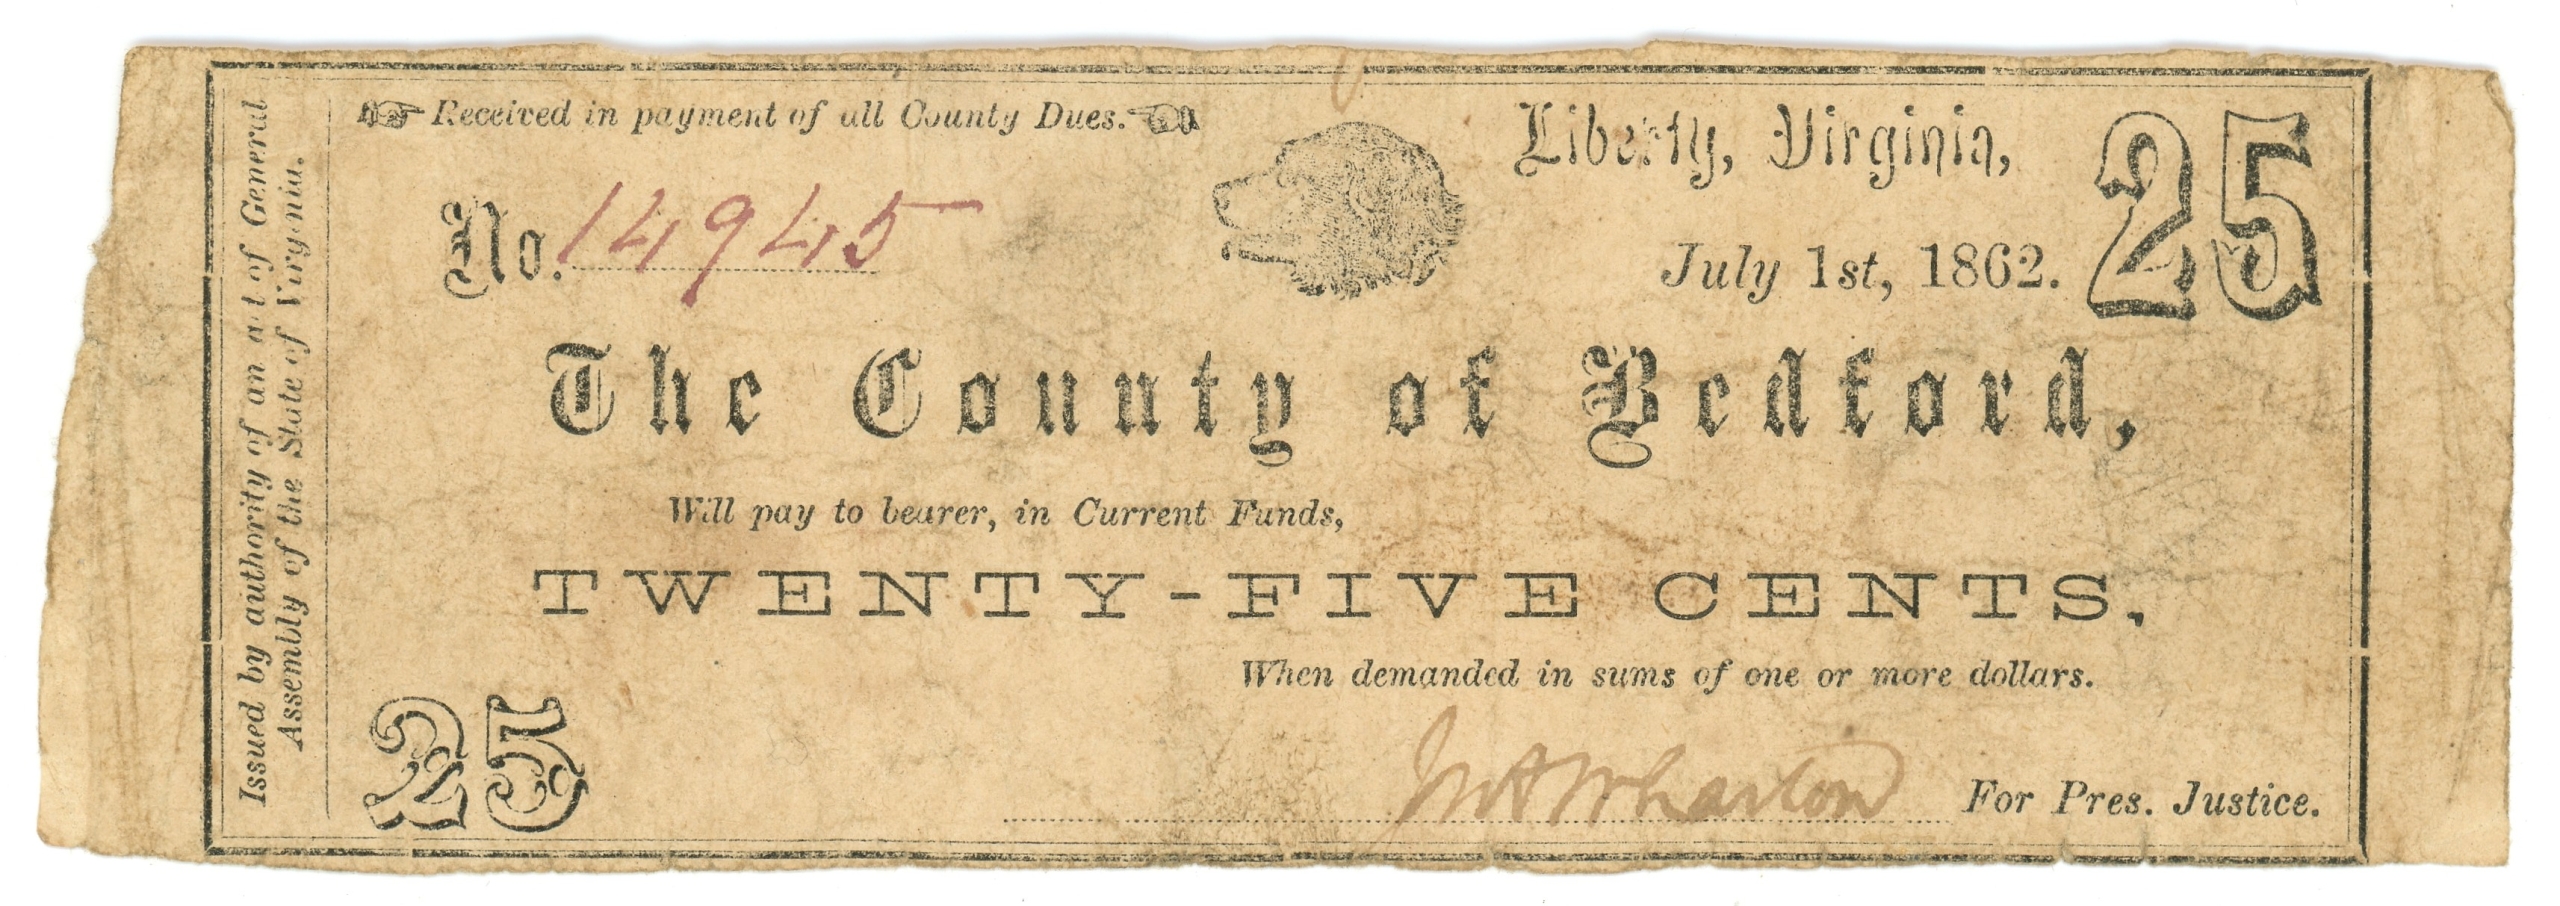 Issued by authority of an act of General
Assembly of the State of Virginia.
Received in payment of all County Dues.
No. 14945
Liberty, Virginia,
July 1st, 1862.
25
The County of Bedford,
Will pay to bearer, in Current Funds,
TWENTY-FIVE CENTS,
When demanded in sums of one or more dollars.
25
Jno A Wharton For Pres. Justice.